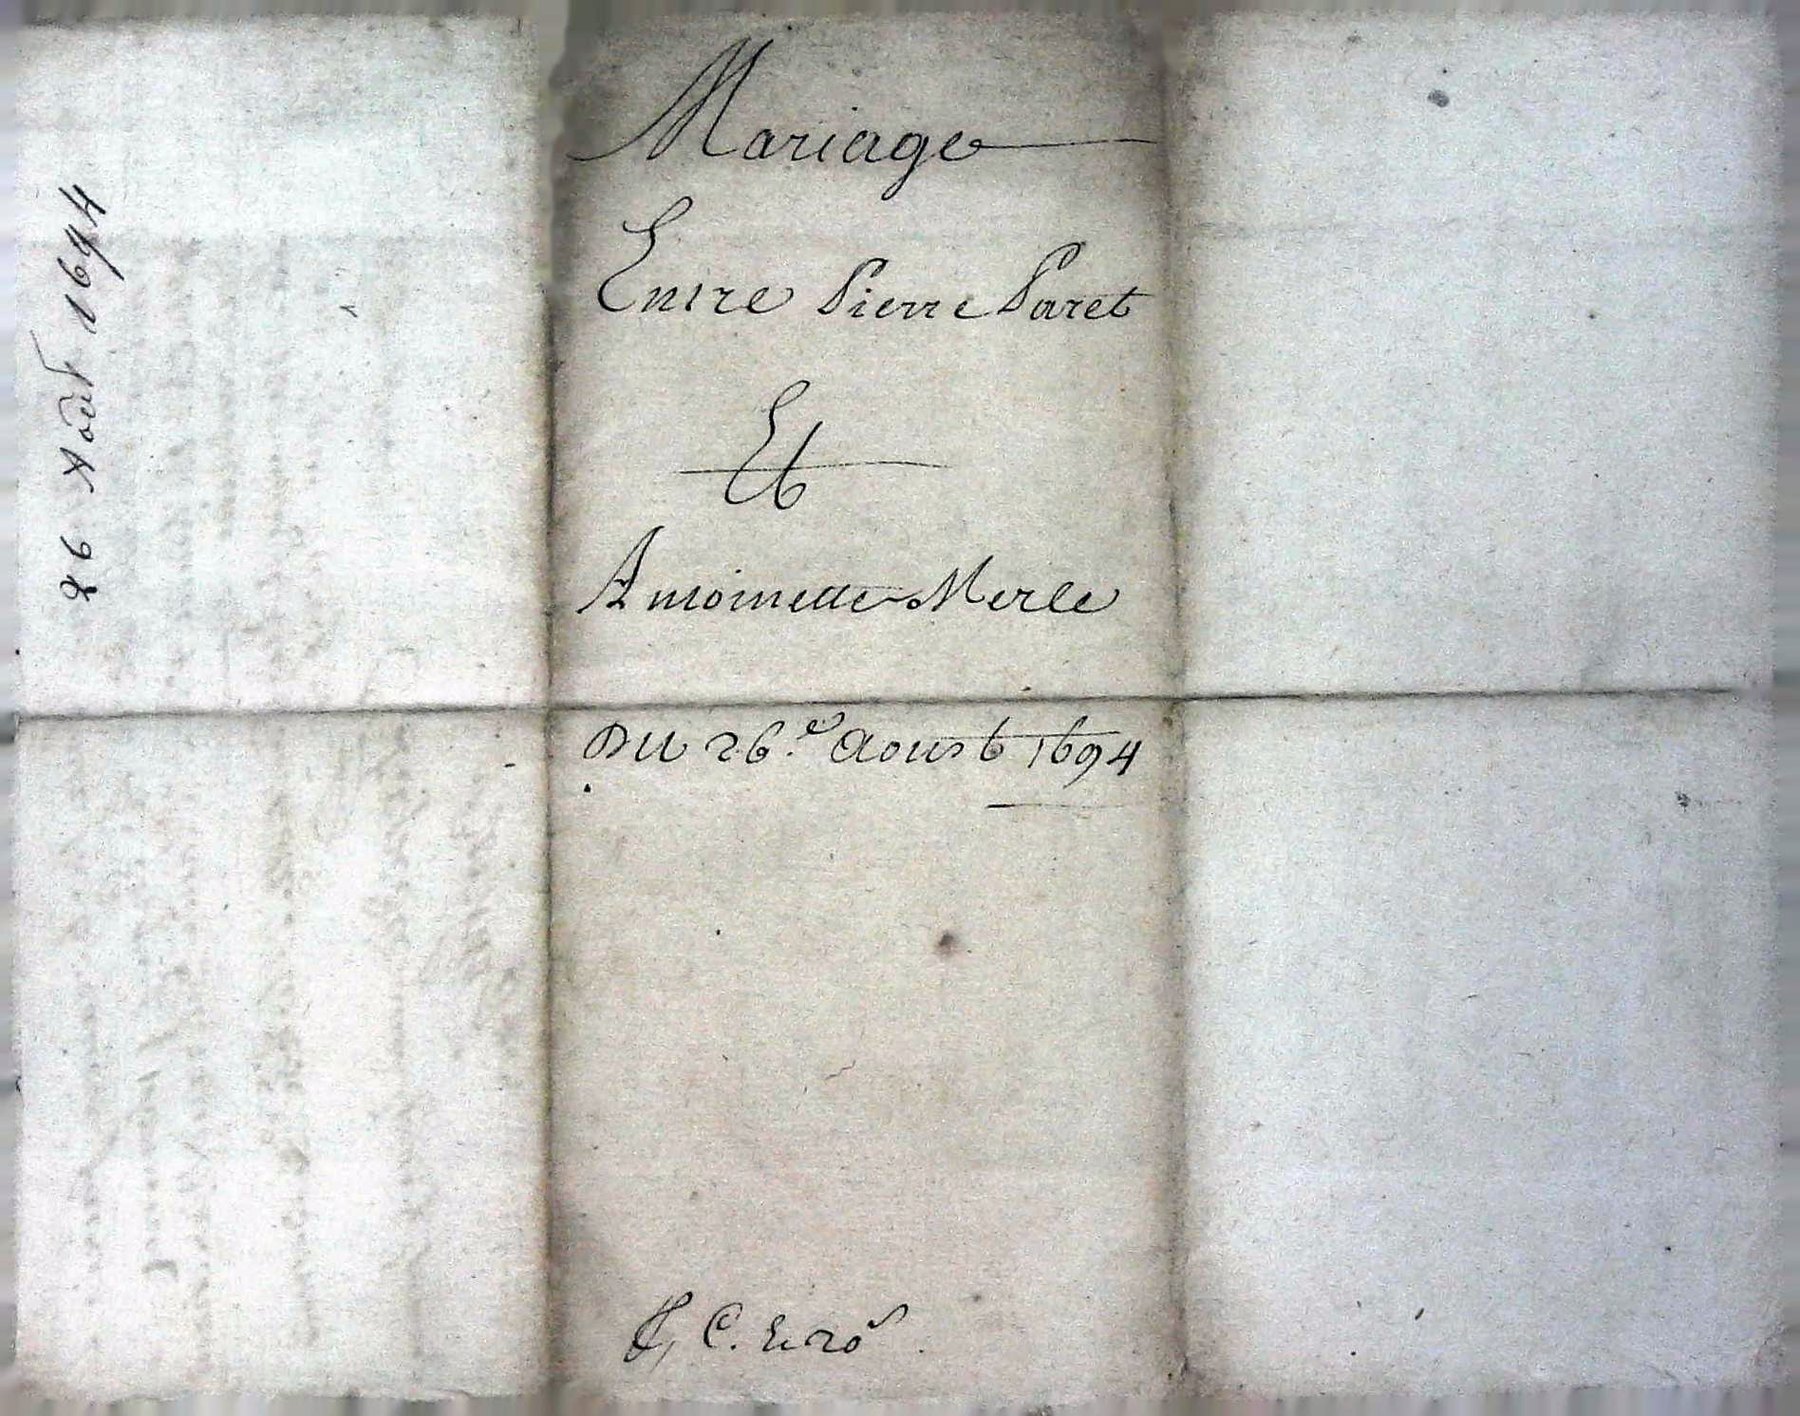 26 Août 1694
Mariage
Entre Pierre Paret
Et
Antoinette Merle
Du 26.e Aoust 1694
C.